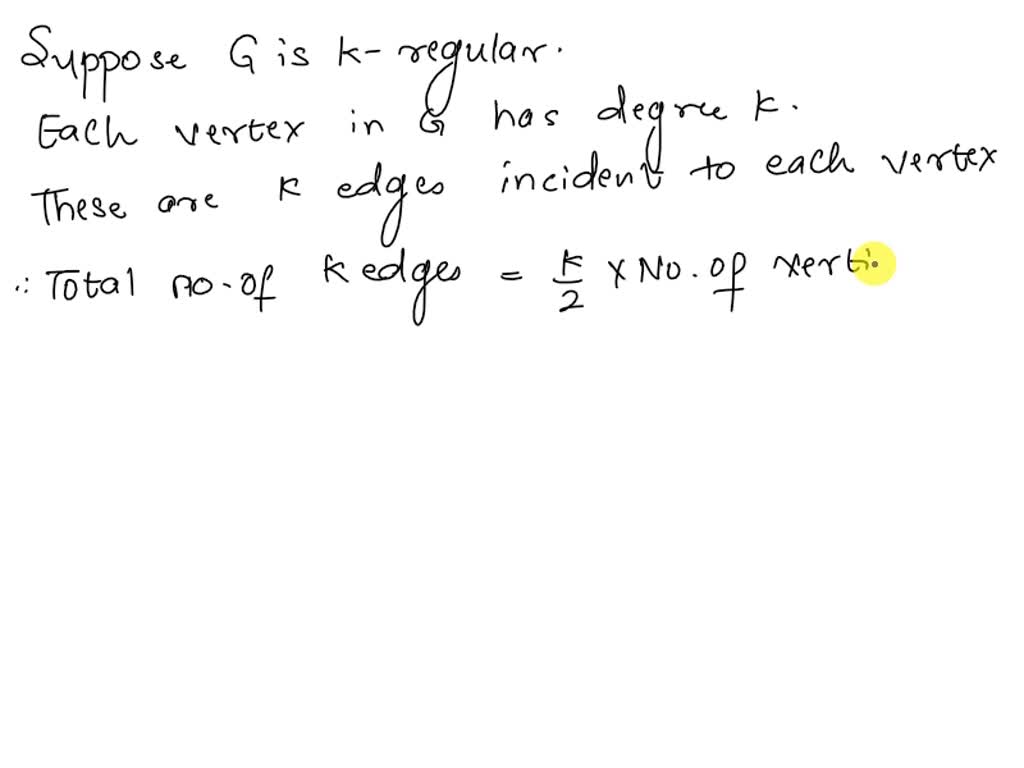 Suppose G is k-regular.
Each vertex in G has degree k.
These are k edges incident to each vertex
∴ Total no. of k edges = k/2 × No. of verti